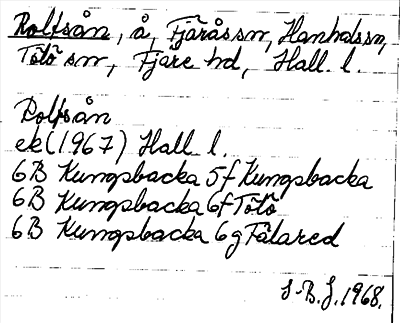 Rolfsån, å, Fjärås sn, Hanhals sn,
Tölö sn, Fjäre hd, Hall. l.
Rolfsån
ek (1967) Hall l.
6B Kungsbacka 5f Kungsbacka
6B Kungsbacka 6f Tölö
6B Kungsbacka 6g Fålared
S-B. J. 1968.